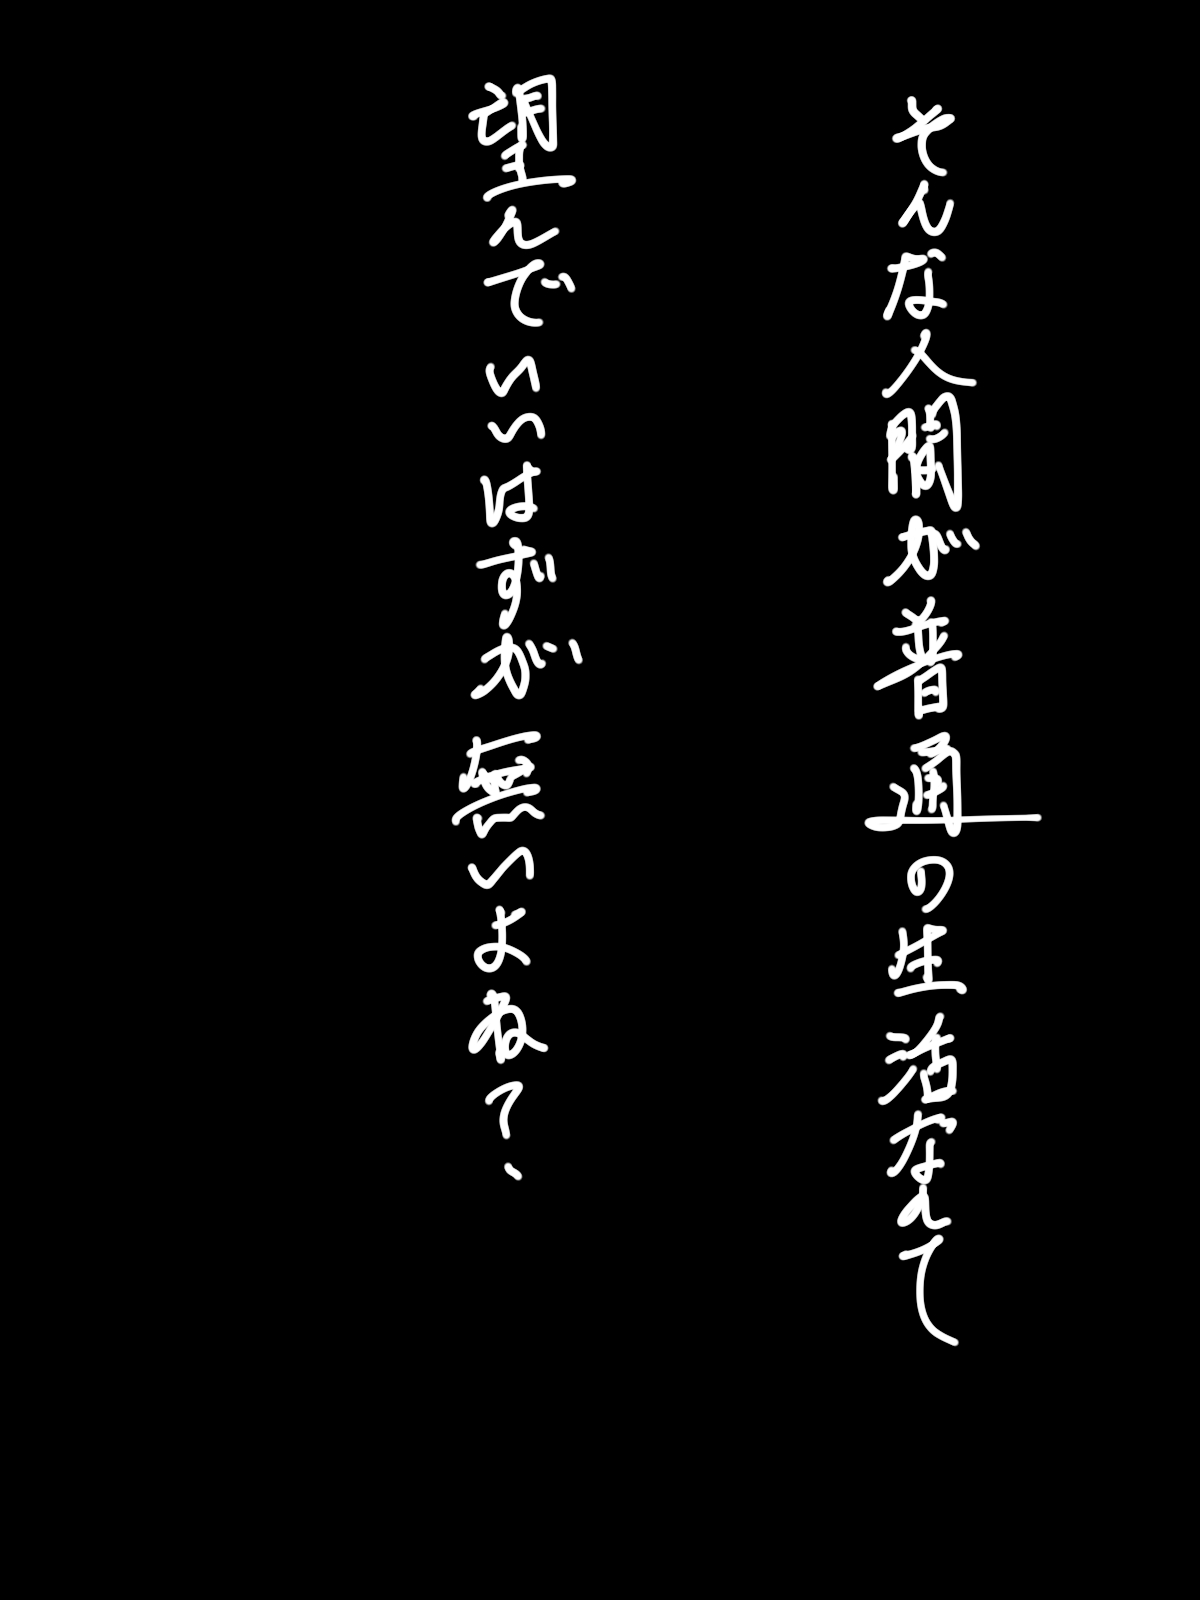 そんな人間が普通の生活なんて
望んでいいはずが無いよね？